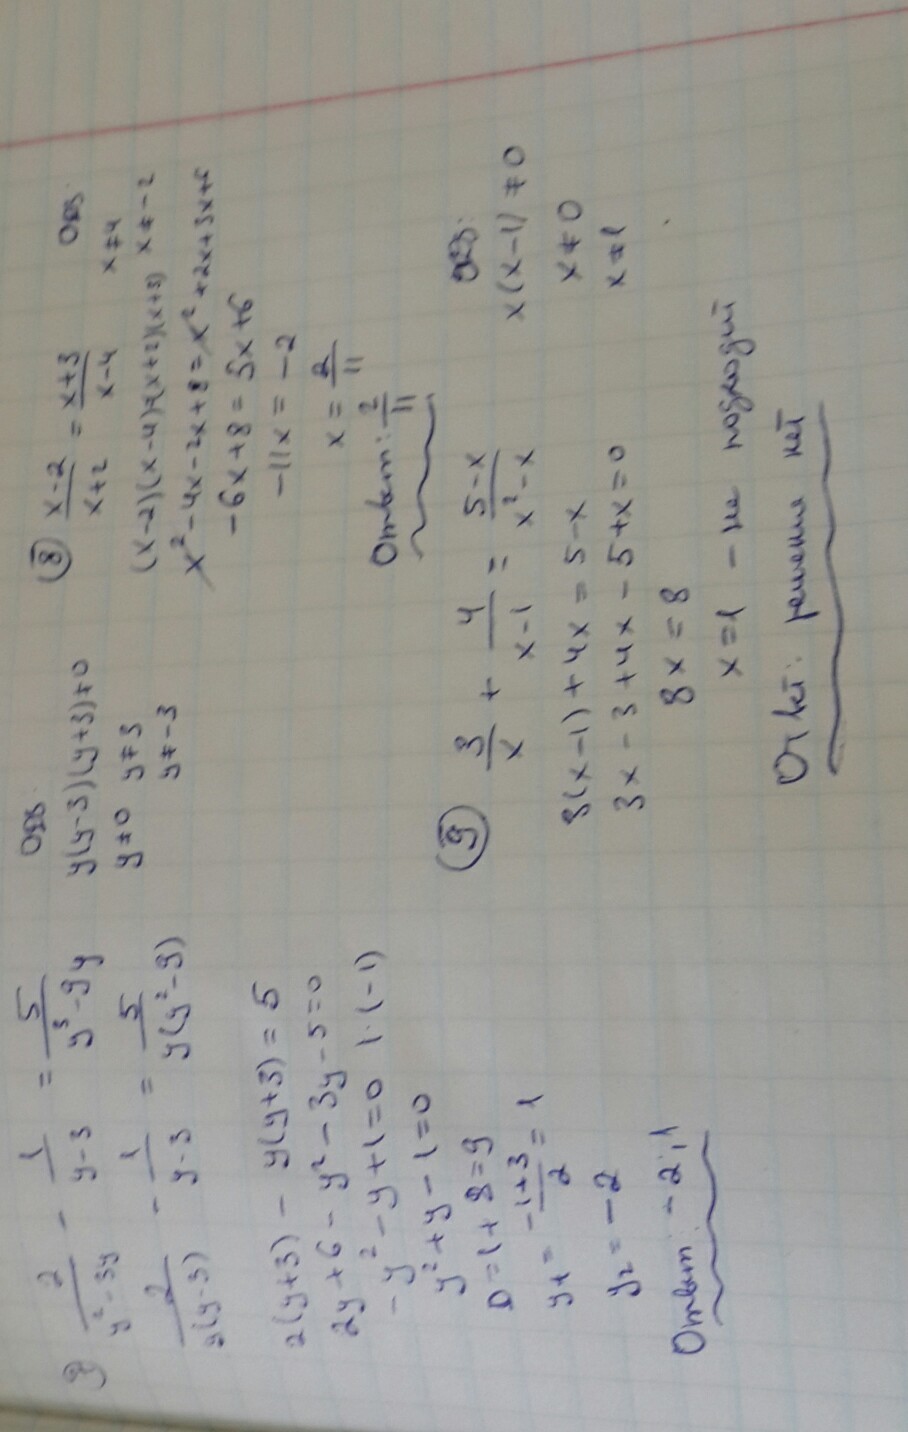 2/(y²-3y) - 1/(y-3) = 5/(y³-9y)
ОДЗ:
2/(y(y-3)) - 1/(y-3) = 5/(y(y²-9))
y(y-3)(y+3)≠0
y≠0 y≠3
y≠-3
2(y+3) - y(y+3) = 5
2y+6-y²-3y-5=0
-y²-y+1=0 |·(-1)
y²+y-1=0
D=1+8=9
y₁ = (-1+3)/2 = 1
y₂ = -2
Ответ: -2; 1
⑧ (x-2)/(x+2) = (x+3)/(x-4)
ОДЗ:
x≠4
(x-2)(x-4)=(x+2)(x+3) x≠-2
x²-4x-2x+8=x²+2x+3x+6
-6x+8=5x+6
-11x=-2
x = 2/11
Ответ: 2/11
⑨ 3/x + 4/(x-1) = (5-x)/(x²-x)
ОДЗ:
x(x-1)≠0
3(x-1)+4x=5-x
x≠0
3x-3+4x-5+x=0
x≠1
8x=8
x=1 - не подходит
Отвєт: решения нет